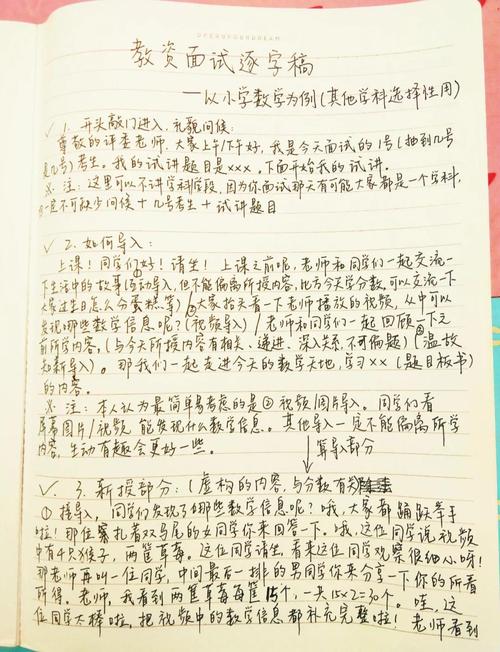 OPEN YOUR DREAM
教资面试逐字稿
——以小学数学为例(其他学科选择性用)
✓ 1. 开头敲门进入、礼貌问候:
尊敬的评委老师,大家上午/下午好,我是今天面试的1号(抽到几号
是几号)考生。我的试讲题目是×××,下面开始我的试讲。
※ 注:这里可以不讲学科学段,因为你面试那天有可能大家都是一个学科,
一定不可缺少问候+几号考生+试讲题目
✓ 2. 如何导入:
上课!同学们好!请坐!上课之前呢,老师和同学们一起交流一
下生活中的故事(①活动导入,但不能偏离所授内容,比方今天学分数,可以交流一下
大家过生日怎么分蛋糕等)/②大家抬头看一下老师播放的视频,从中可以
发现哪些数学信息呢?(视频导入)/老师和同学们一起回顾一下之
前所学内容,(与今天所授内容有相关、递进、深入关系,不可偏题)(③温故
知新导入)。那我们一起走进今天的数学天地,学习××(题目板书)
的内容。
※ 注:本人认为最简单易考虑的是②视频/图片导入。同学们看
屏幕图片/视频,能发现什么数学信息。其他导入一定不能偏离所学
内容,生动有趣会更好一些。
↓算导入部分
✓ 3. 新授部分:(虚构的内容,与分数有关
① 接导入,同学们发现了哪些数学信息呢?哦,大家都踊跃举手
啦!那位扎着双马尾的女同学你来回答一下。哦,这位同学说视频
中有4只猴子,两筐草莓。这位同学请坐,看来这位同学观察很细心呀!
那老师再叫一位同学,中间最后一排的男同学你来分享一下你的所看
所得。老师,我看到两筐草莓每筐15个,一共15×2=30个。哇,这
位同学太棒啦,把视频中的数学信息都补充完整啦!老师看到